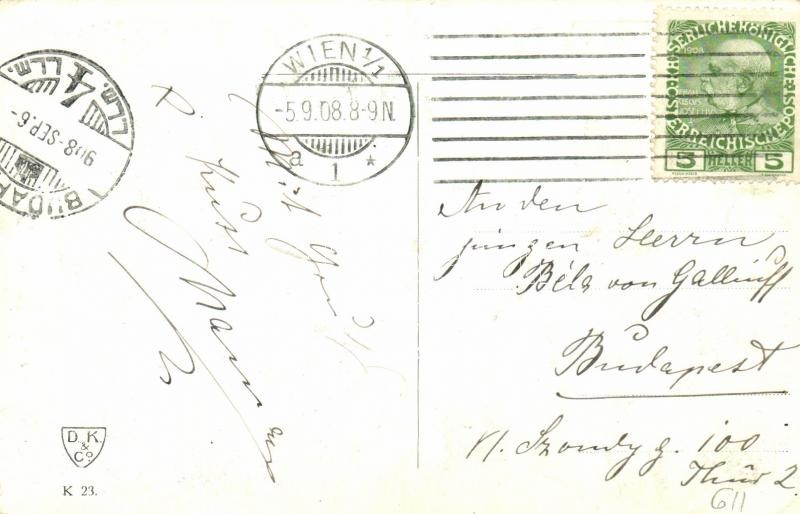 Mit Gruß
u. Kuss
Maman
WIEN 1/1
-5.9.08.8-9N.
a 1 *
BUDAP
908 SEP. 6-
KAISERLICHE KÖNIGLICHE
OESTERREICHISCHE POST
1908
5 HELLER 5
An den
jungen Herrn
Béla von
Budapest
VI. Szondy g. 100
Thür 2
611
D. K.
& Co
K 23.